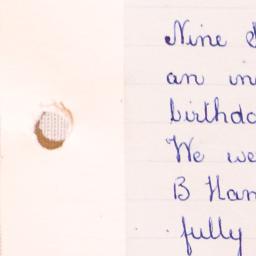 Nine
an in
birthda
We we
B Han
fully